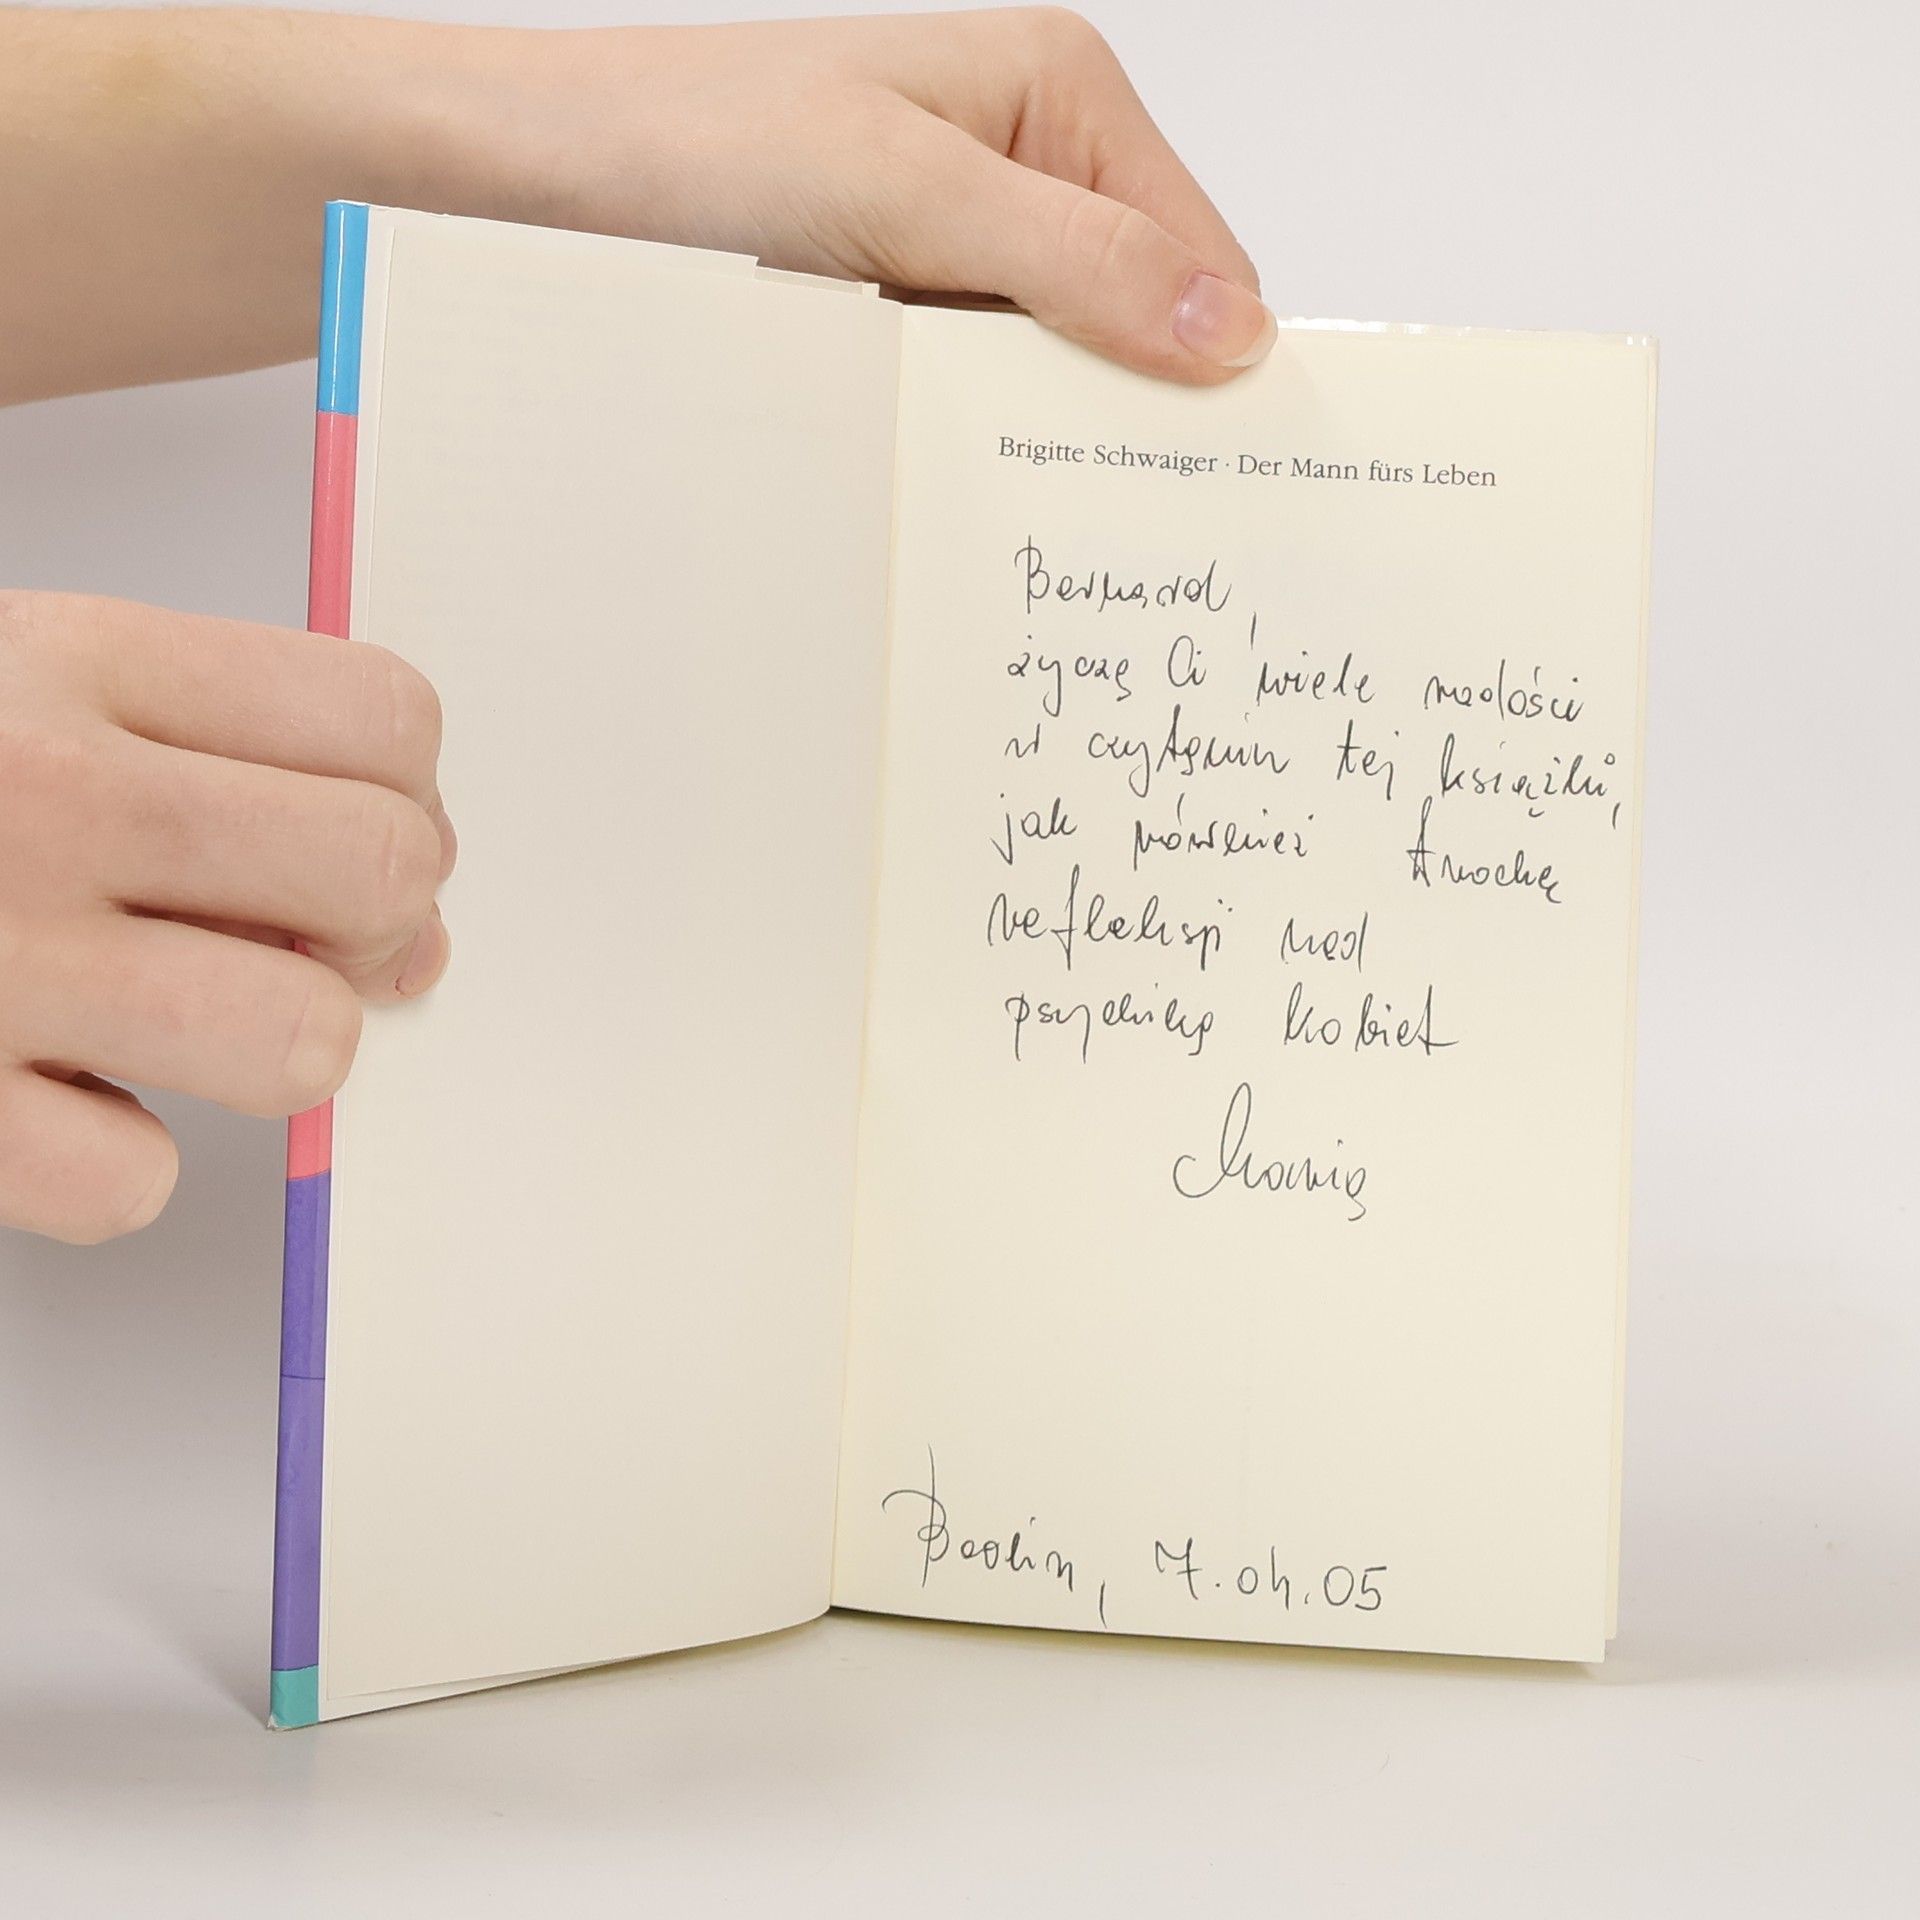 Brigitte Schwaiger · Der Mann fürs Leben
Bernard,
życzę Ci wiele radości
w czytaniu tej książki,
jak również trochę
refleksji nad
psychiką kobiet
Mania
Berlin, 7.04.05